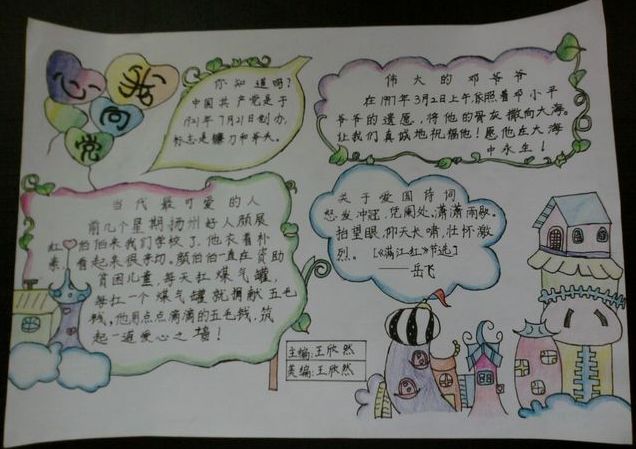 童心向党
你知道吗?
中国共产党是于
1921年7月21日创办,
标志是镰刀和斧头。
伟大的邓爷爷
在1997年3月2日上午,依照着邓小平
爷爷的遗愿,将他的骨灰撒向大海。
让我们真诚地祝福他!愿他在大海
中永生!
当代最可爱的人
前几个星期扬州好人颜展
红伯伯来我们学校了,他衣着朴
素看起来很亲切。颜伯伯一直在资助
贫困儿童,每天扛煤气罐,
每扛一个煤气罐就捐献五毛
钱,他用点点滴滴的五毛钱,筑
起一道爱心之墙!
关于爱国诗词
怒发冲冠,凭阑处、潇潇雨歇。
抬望眼,仰天长啸,壮怀激
烈。[《满江红》节选]
——岳飞
主编:王欣然
美编:王欣然